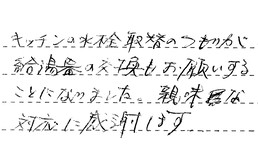 キッチンの水栓取替のつもりが
給湯器の交換もお願いする
ことになりました。親味な
対応に感謝します